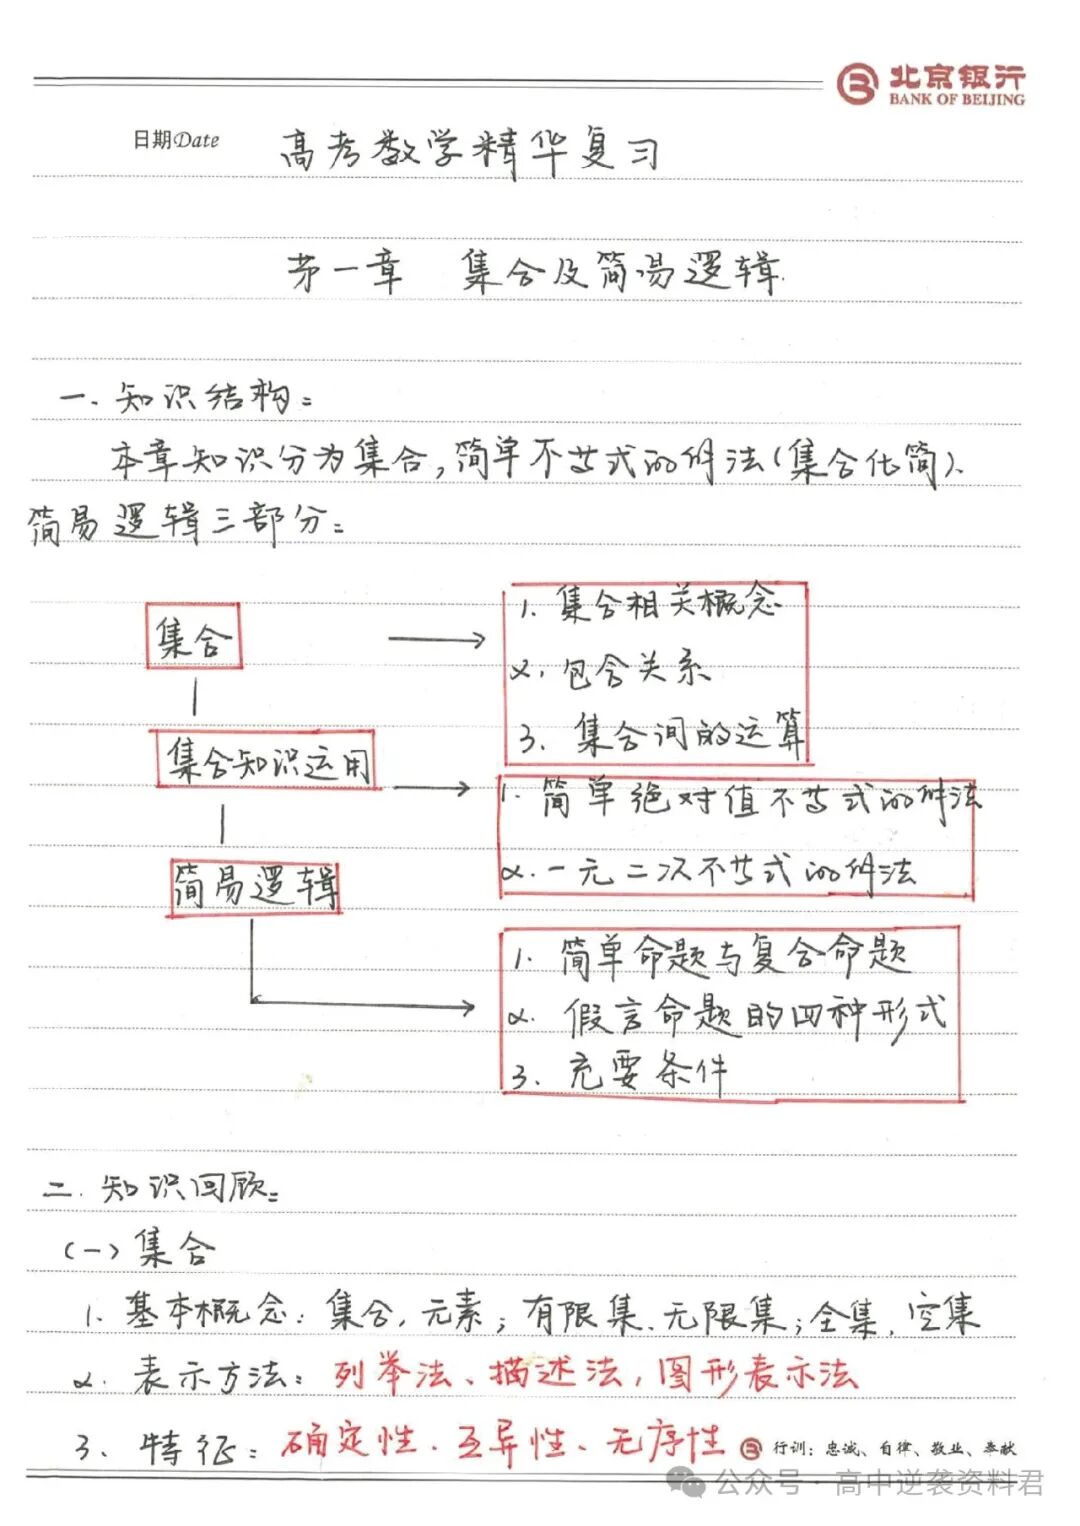 北京银行
BANK OF BEIJING
日期Date 高考数学精华复习
第一章 集合及简易逻辑.
一. 知识结构:
本章知识分为集合,简单不等式的解法(集合化简)、
简易逻辑三部分:
集合
1. 集合相关概念
2. 包含关系
3. 集合间的运算
集合知识运用
1. 简单绝对值不等式的解法
2. 一元二次不等式的解法
简易逻辑
1. 简单命题与复合命题
2. 假言命题的四种形式
3. 充要条件
二. 知识回顾:
(一) 集合
1. 基本概念: 集合, 元素; 有限集、无限集; 全集, 空集
2. 表示方法: 列举法、描述法, 图形表示法
3. 特征: 确定性、互异性、无序性
行训: 忠诚、自律、敬业、奉献
公众号 · 高中逆袭资料君